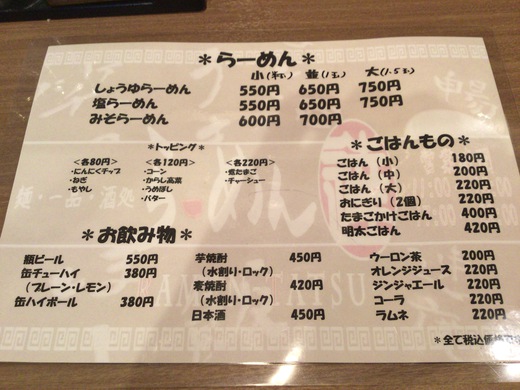 ＊らーめん＊
小(半玉) 並(1玉) 大(1.5玉)
しょうゆらーめん 550円 650円 750円
塩らーめん 550円 650円 750円
みそらーめん 600円 700円
＊トッピング＊
＜各80円＞ ＜各120円＞ ＜各220円＞
・にんにくチップ ・コーン ・煮たまご
・ねぎ ・からし高菜 ・チャーシュー
・もやし ・うめぼし
・バター
＊ごはんもの＊
ごはん（小） 180円
ごはん（中） 200円
ごはん（大） 220円
おにぎり（2個） 220円
たまごかけごはん 400円
明太ごはん 420円
＊お飲み物＊
瓶ビール 550円
缶チューハイ 380円
（プレーン・レモン）
缶ハイボール 380円
芋焼酎 450円
（水割り・ロック）
麦焼酎 420円
（水割り・ロック）
日本酒 450円
ウーロン茶 200円
オレンジジュース 220円
ジンジャエール 220円
コーラ 220円
ラムネ 220円
＊全て税込価格です
麺・一品・酒処
らーめん
RAMEN TATSU